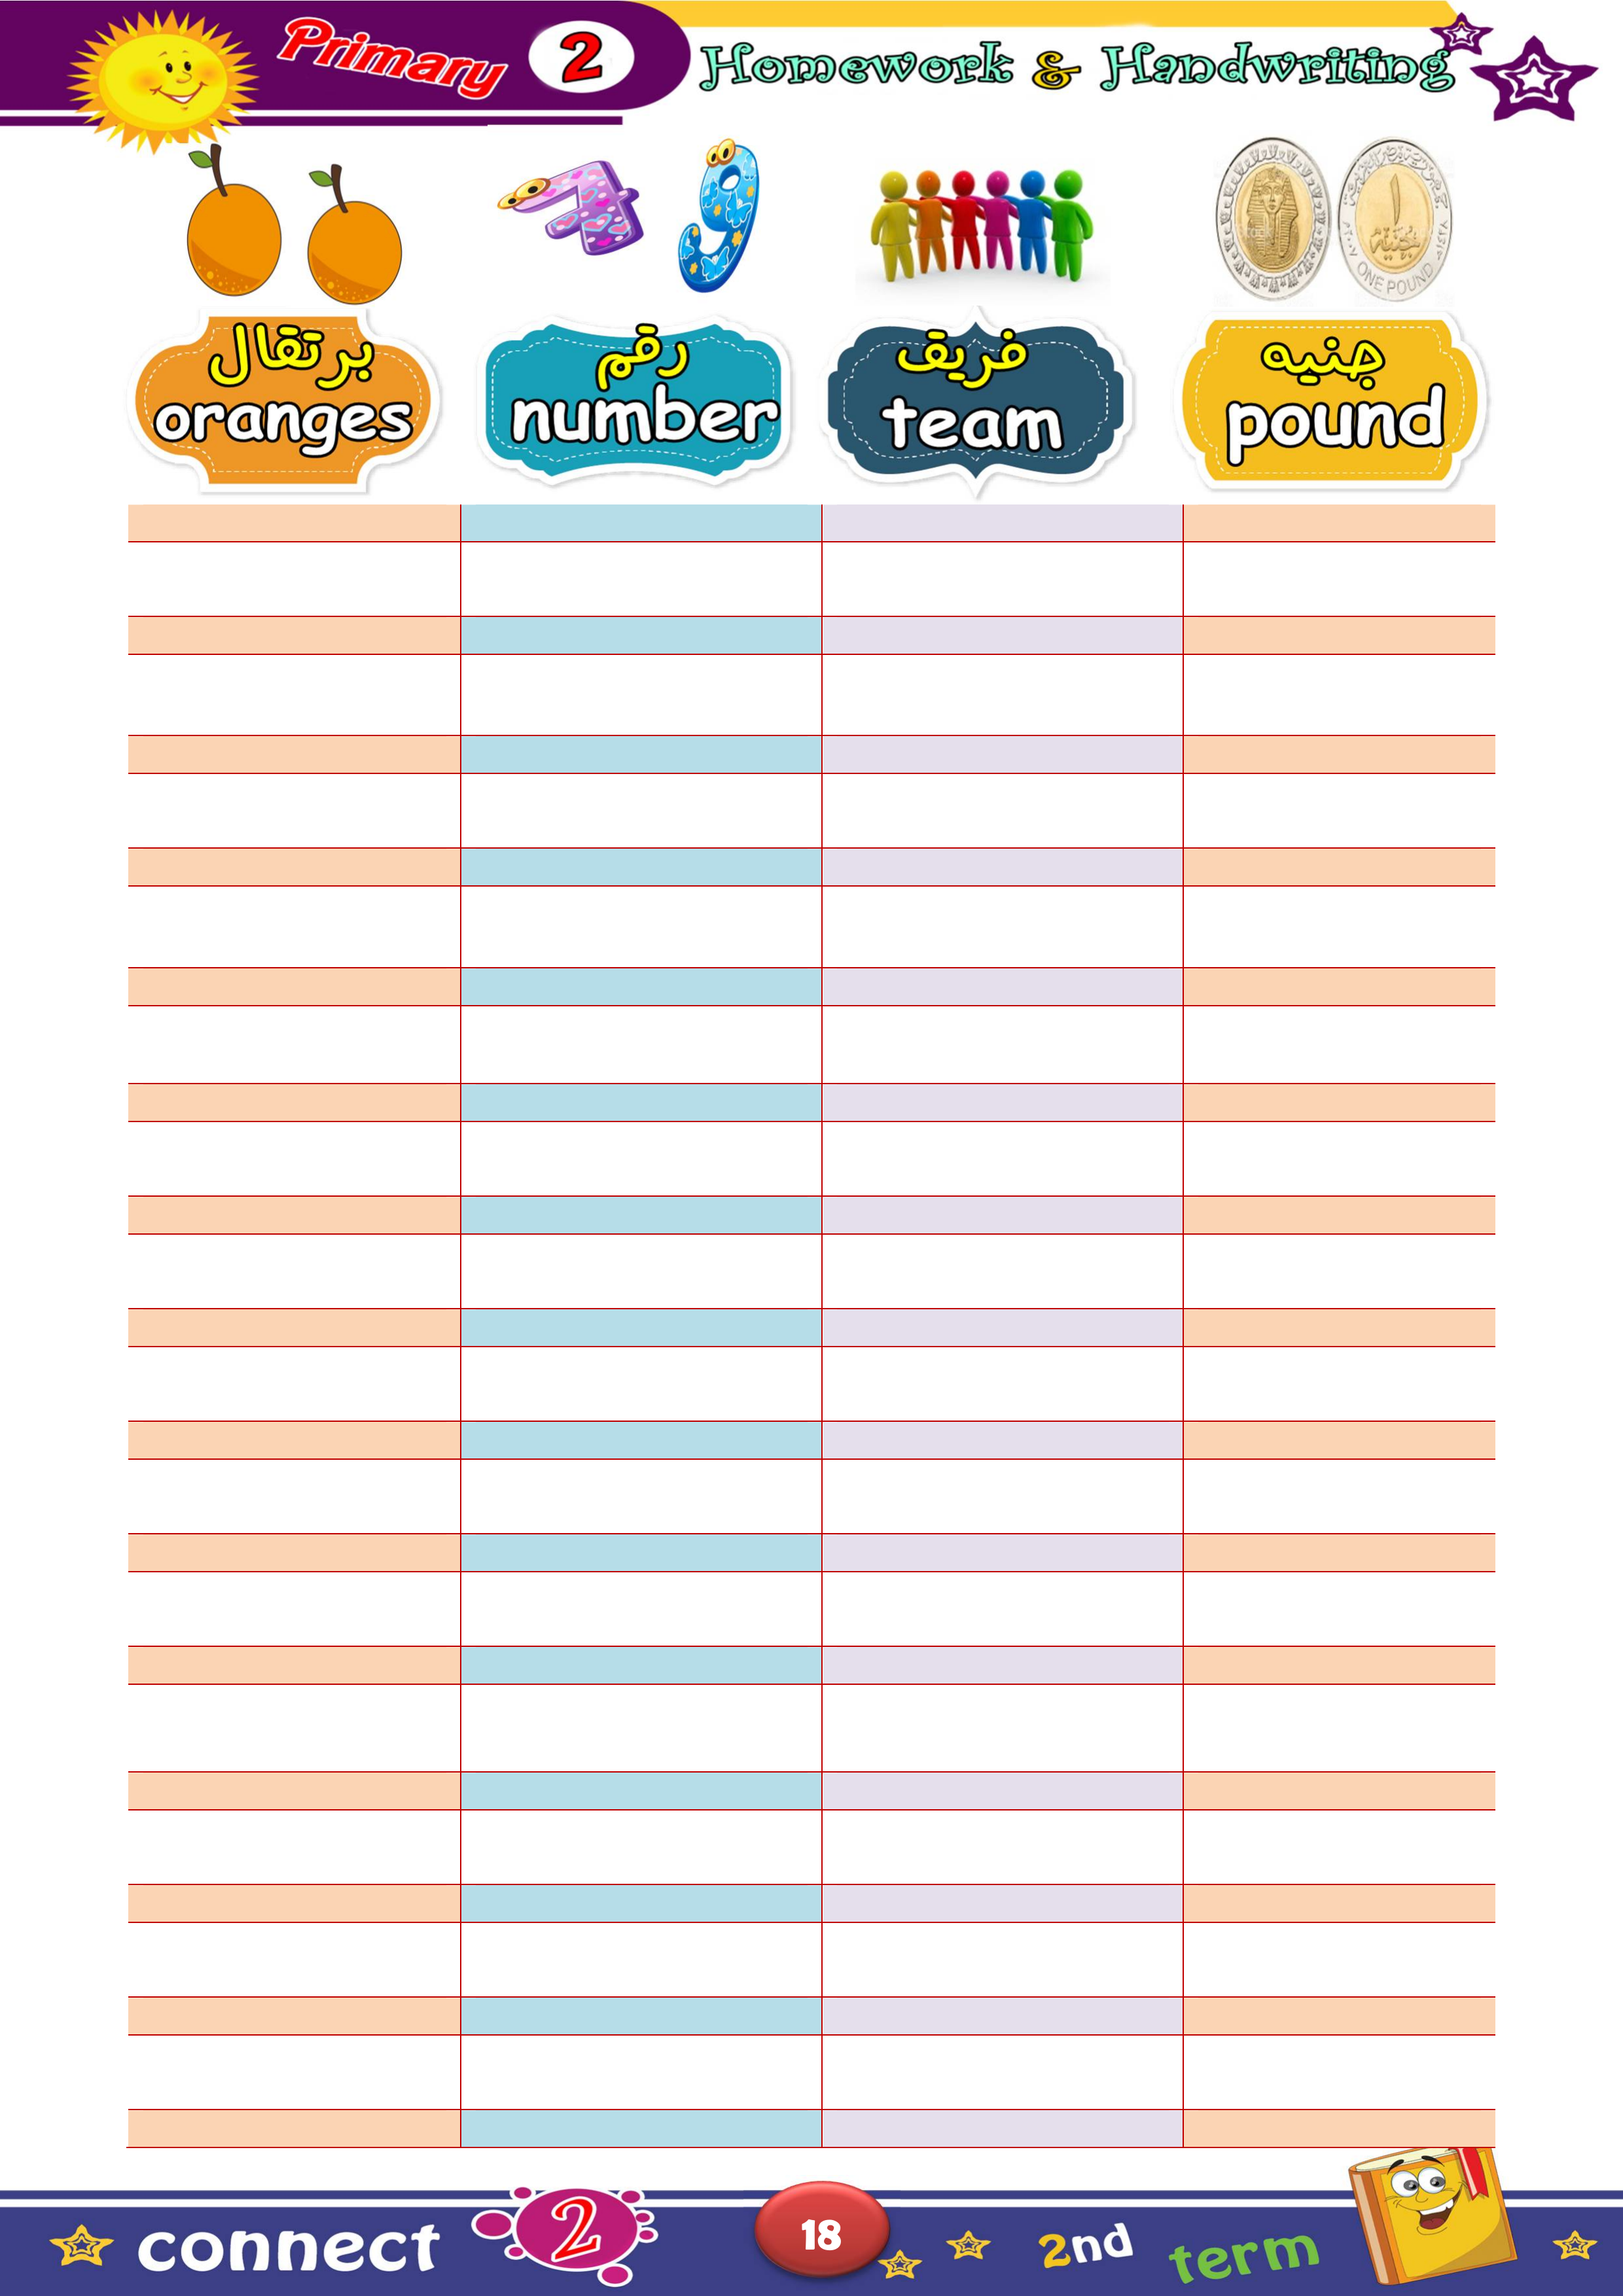 Primary 2 Homework & Handwriting
ONE POUND
برتقال
oranges
رقم
number
فريق
team
جنيه
pound
connect 2 18 2nd term